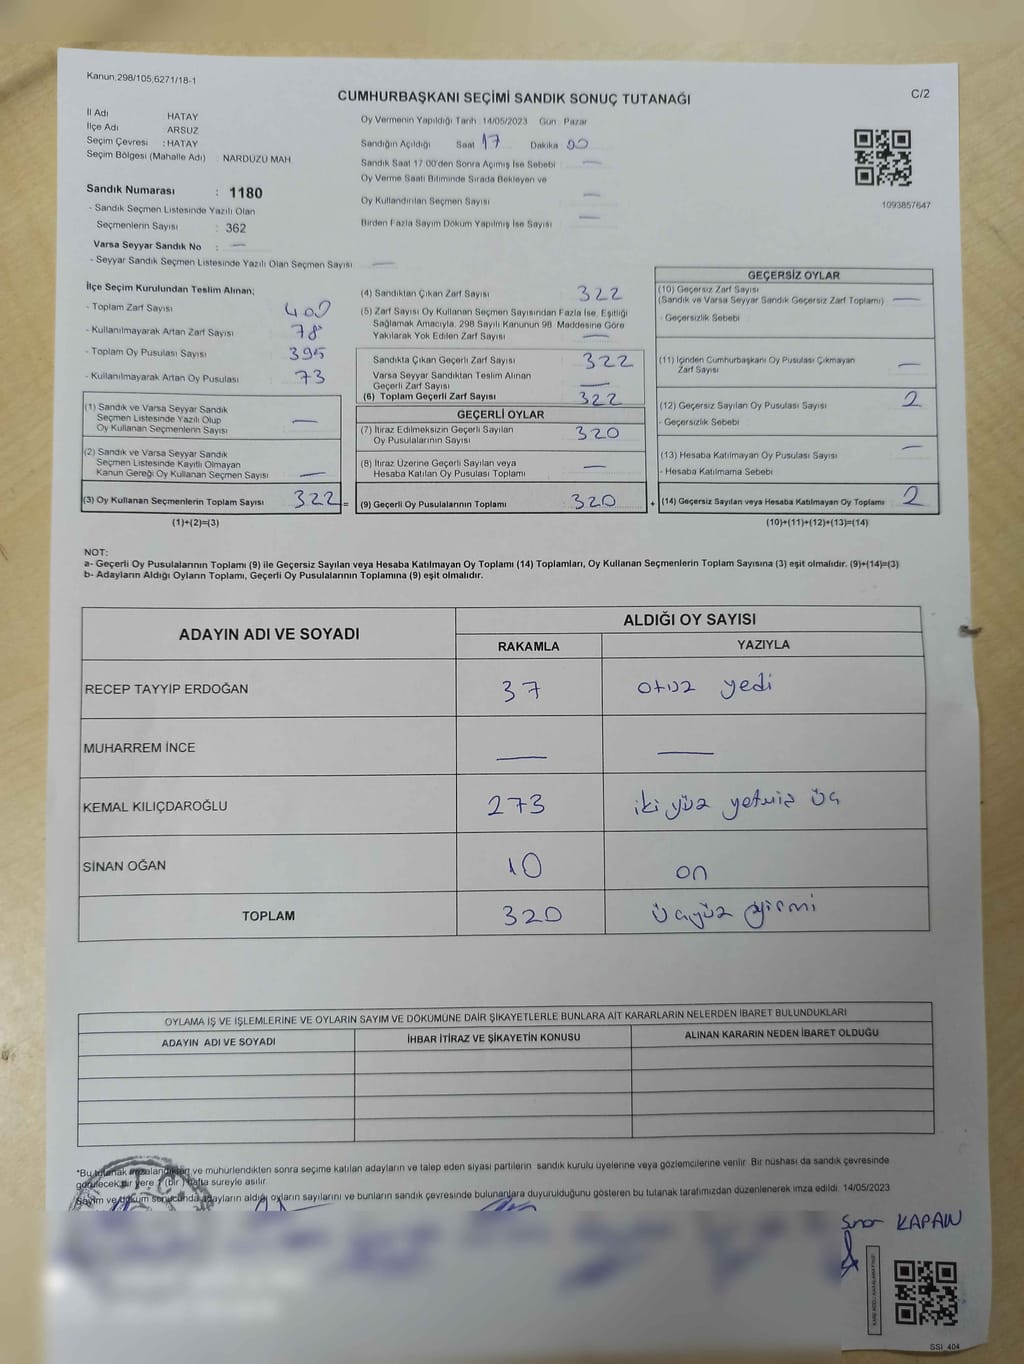 Kanun,298/105,6271/18-1
CUMHURBAŞKANI SEÇİMİ SANDIK SONUÇ TUTANAĞI
C/2
İl Adı HATAY
İlçe Adı ARSUZ
Seçim Çevresi : HATAY
Seçim Bölgesi (Mahalle Adı) : NARDUZU MAH
Sandık Numarası : 1180
- Sandık Seçmen Listesinde Yazılı Olan
Seçmenlerin Sayısı : 362
Varsa Seyyar Sandık No : —
- Seyyar Sandık Seçmen Listesinde Yazılı Olan Seçmen Sayısı —
Oy Vermenin Yapıldığı Tarih 14/05/2023 Gün Pazar
Sandığın Açıldığı Saat 17 Dakika 00
Sandık Saat 17 00'den Sonra Açılmış İse Sebebi —
Oy Verme Saati Bitiminde Sırada Bekleyen ve
Oy Kullandırılan Seçmen Sayısı —
Birden Fazla Sayım Döküm Yapılmış İse Sayısı —
1093857647
İlçe Seçim Kurulundan Teslim Alınan;
- Toplam Zarf Sayısı 400
- Kullanılmayarak Artan Zarf Sayısı 78
- Toplam Oy Pusulası Sayısı 395
- Kullanılmayarak Artan Oy Pusulası 73
(1) Sandık ve Varsa Seyyar Sandık
Seçmen Listesinde Yazılı Olup
Oy Kullanan Seçmenlerin Sayısı —
(2) Sandık ve Varsa Seyyar Sandık
Seçmen Listesinde Kayıtlı Olmayan
Kanun Gereği Oy Kullanan Seçmen Sayısı —
(3) Oy Kullanan Seçmenlerin Toplam Sayısı 322 =
(1)+(2)=(3)
(4) Sandıktan Çıkan Zarf Sayısı 322
(5) Zarf Sayısı Oy Kullanan Seçmen Sayısından Fazla İse, Eşitliği
Sağlamak Amacıyla, 298 Sayılı Kanunun 98. Maddesine Göre
Yakılarak Yok Edilen Zarf Sayısı —
Sandıkta Çıkan Geçerli Zarf Sayısı 322
Varsa Seyyar Sandıktan Teslim Alınan
Geçerli Zarf Sayısı —
(6) Toplam Geçerli Zarf Sayısı 322
GEÇERLİ OYLAR
(7) İtiraz Edilmeksizin Geçerli Sayılan
Oy Pusulalarının Sayısı 320
(8) İtiraz Üzerine Geçerli Sayılan veya
Hesaba Katılan Oy Pusulası Toplamı —
(9) Geçerli Oy Pusulalarının Toplamı 320 +
GEÇERSİZ OYLAR
(10) Geçersiz Zarf Sayısı
(Sandık ve Varsa Seyyar Sandık Geçersiz Zarf Toplamı) —
- Geçersizlik Sebebi
(11) İçinden Cumhurbaşkanı Oy Pusulası Çıkmayan
Zarf Sayısı —
(12) Geçersiz Sayılan Oy Pusulası Sayısı 2
- Geçersizlik Sebebi
(13) Hesaba Katılmayan Oy Pusulası Sayısı —
- Hesaba Katılmama Sebebi
(14) Geçersiz Sayılan veya Hesaba Katılmayan Oy Toplamı 2
(10)+(11)+(12)+(13)=(14)
NOT:
a- Geçerli Oy Pusulalarının Toplamı (9) ile Geçersiz Sayılan veya Hesaba Katılmayan Oy Toplamı (14) Toplamları, Oy Kullanan Seçmenlerin Toplam Sayısına (3) eşit olmalıdır. (9)+(14)=(3)
b- Adayların Aldığı Oyların Toplamı, Geçerli Oy Pusulalarının Toplamına (9) eşit olmalıdır.
ADAYIN ADI VE SOYADI ALDIĞI OY SAYISI
RAKAMLA YAZIYLA
RECEP TAYYİP ERDOĞAN 37 otuz yedi
MUHARREM İNCE — —
KEMAL KILIÇDAROĞLU 273 iki yüz yetmiş üç
SİNAN OĞAN 10 on
TOPLAM 320 üçyüz yirmi
OYLAMA İŞ VE İŞLEMLERİNE VE OYLARIN SAYIM VE DÖKÜMÜNE DAİR ŞİKAYETLERLE BUNLARA AİT KARARLARIN NELERDEN İBARET BULUNDUKLARI
ADAYIN ADI VE SOYADI İHBAR İTİRAZ VE ŞİKAYETİN KONUSU ALINAN KARARIN NEDEN İBARET OLDUĞU
*Bu tutanak imzalandıktan ve mühürlendikten sonra seçime katılan adayların ve talep eden siyasi partilerin sandık kurulu üyelerine veya gözlemcilerine verilir. Bir nüshası da sandık çevresinde
görülecek bir yere 1 (bir) hafta süreyle asılır.
Sayım ve döküm sonucunda adayların aldığı oyların sayılarını ve bunların sandık çevresinde bulunanlara duyurulduğunu gösteren bu tutanak tarafımızdan düzenlenerek imza edildi. 14/05/2023
KAPAN
SSI 404